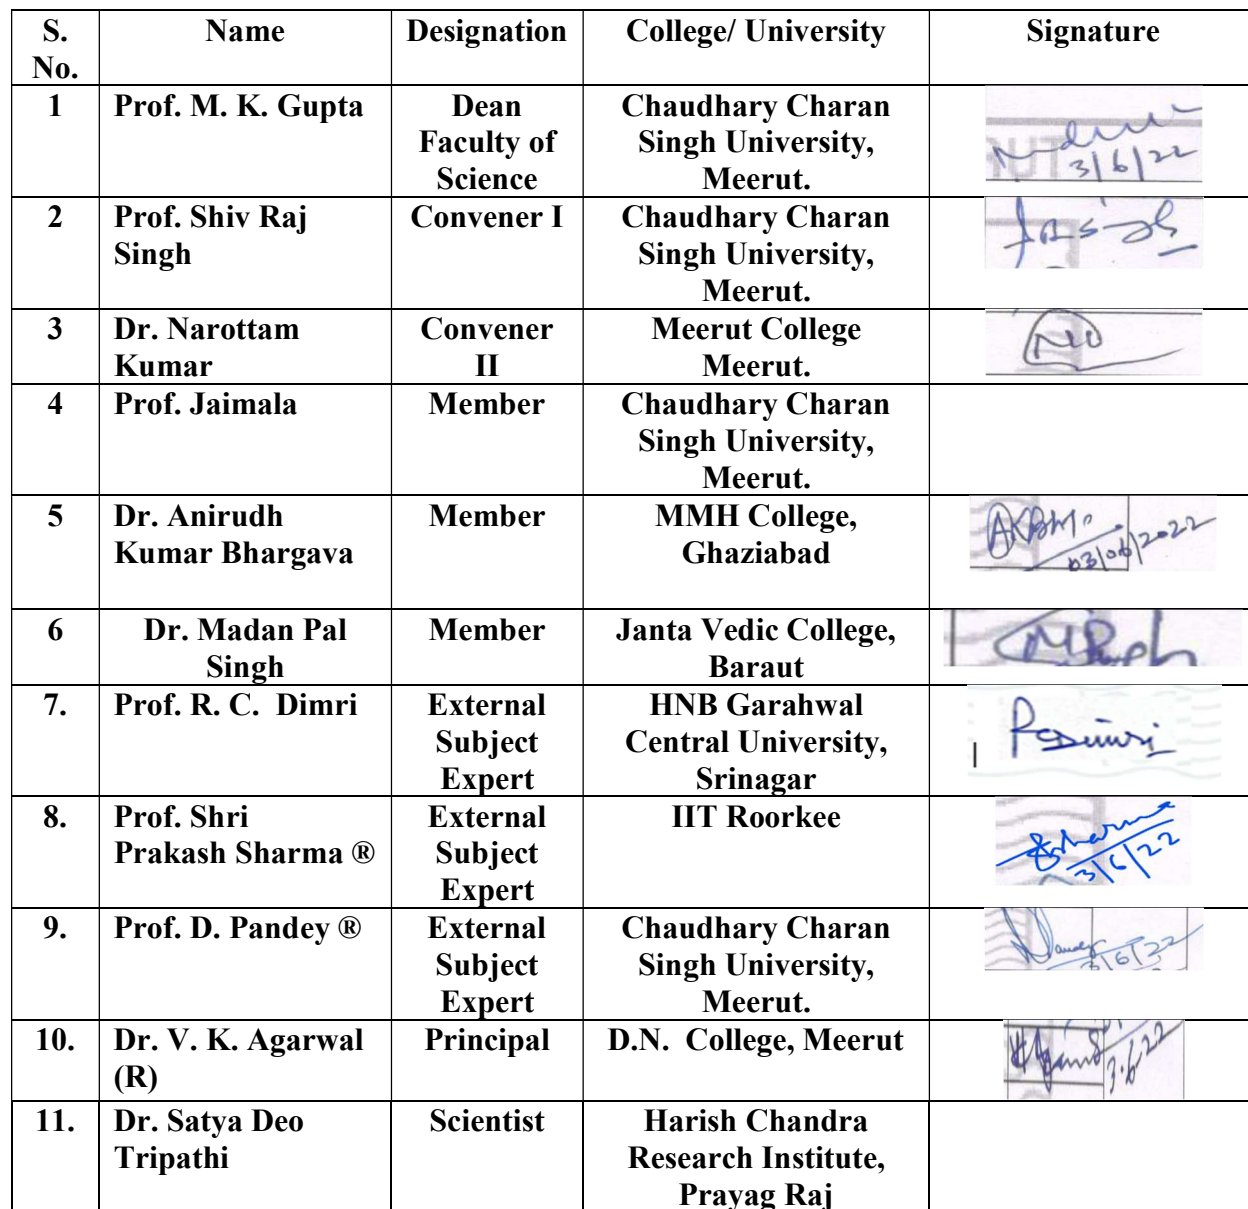 S. No. Name Designation College/ University Signature
1 Prof. M. K. Gupta Dean Faculty of Science Chaudhary Charan Singh University, Meerut. 3/6/22
2 Prof. Shiv Raj Singh Convener I Chaudhary Charan Singh University, Meerut.
3 Dr. Narottam Kumar Convener II Meerut College Meerut.
4 Prof. Jaimala Member Chaudhary Charan Singh University, Meerut.
5 Dr. Anirudh Kumar Bhargava Member MMH College, Ghaziabad 03/06/2022
6 Dr. Madan Pal Singh Member Janta Vedic College, Baraut
7. Prof. R. C. Dimri External Subject Expert HNB Garahwal Central University, Srinagar
8. Prof. Shri Prakash Sharma ® External Subject Expert IIT Roorkee Sharma 3/6/22
9. Prof. D. Pandey ® External Subject Expert Chaudhary Charan Singh University, Meerut. 3/6/22
10. Dr. V. K. Agarwal (R) Principal D.N. College, Meerut 3.6.22
11. Dr. Satya Deo Tripathi Scientist Harish Chandra Research Institute, Prayag Raj